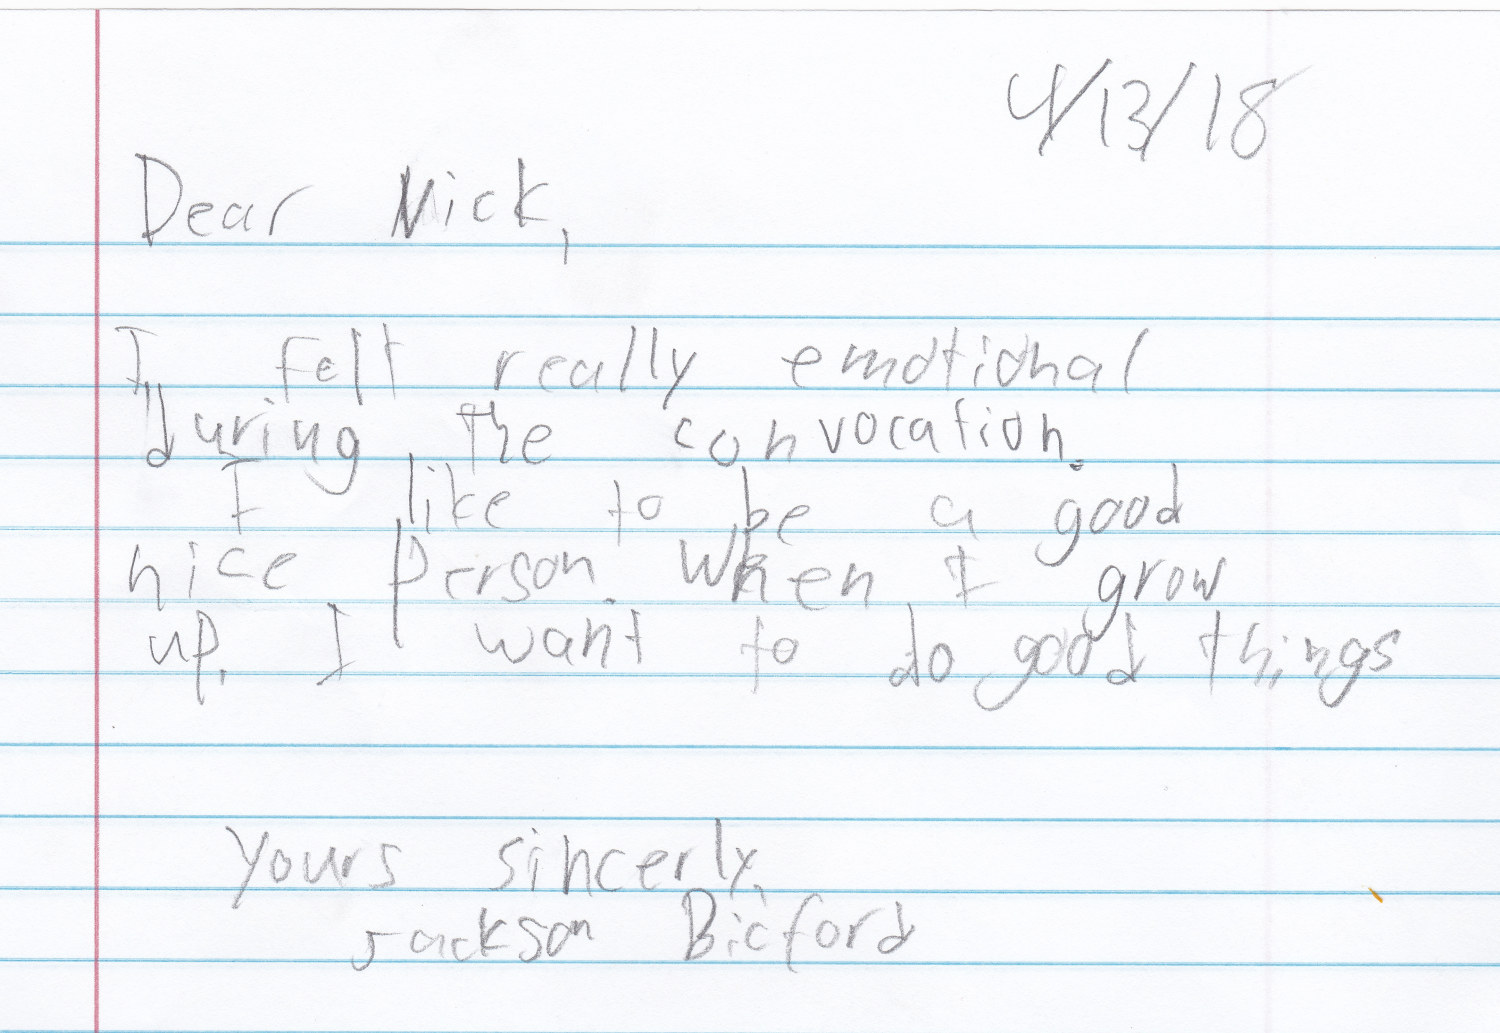 4/13/18
Dear Nick,
I felt really emotional
during the convocation.
I like to be a good
nice person. When I grow
up, I want to do good things
Yours sincerly,
Jackson Bicford